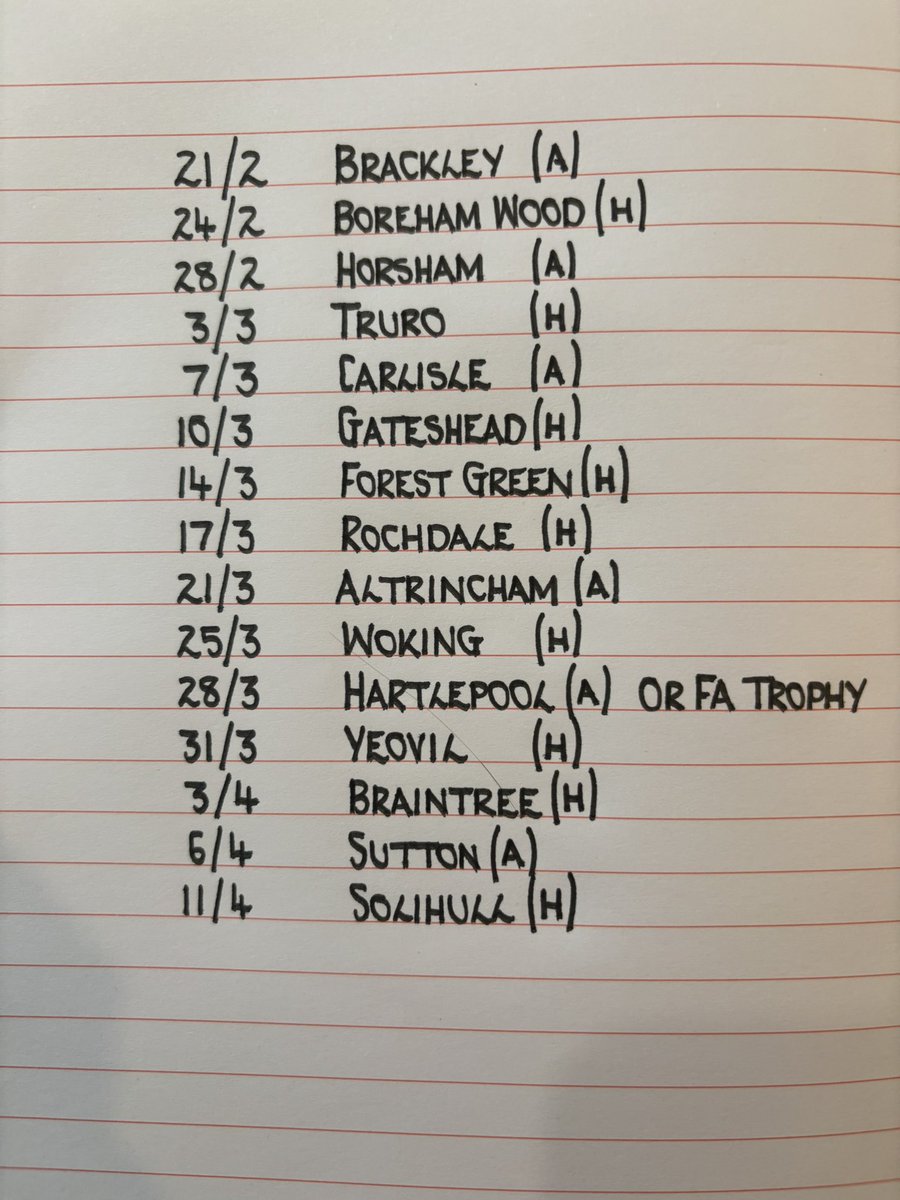 21/2 BRACKLEY (A)
24/2 BOREHAM WOOD (H)
28/2 HORSHAM (A)
3/3 TRURO (H)
7/3 CARLISLE (A)
10/3 GATESHEAD (H)
14/3 FOREST GREEN (H)
17/3 ROCHDALE (H)
21/3 ALTRINCHAM (A)
25/3 WOKING (H)
28/3 HARTLEPOOL (A) OR FA TROPHY
31/3 YEOVIL (H)
3/4 BRAINTREE (H)
6/4 SUTTON (A)
11/4 SOLIHULL (H)